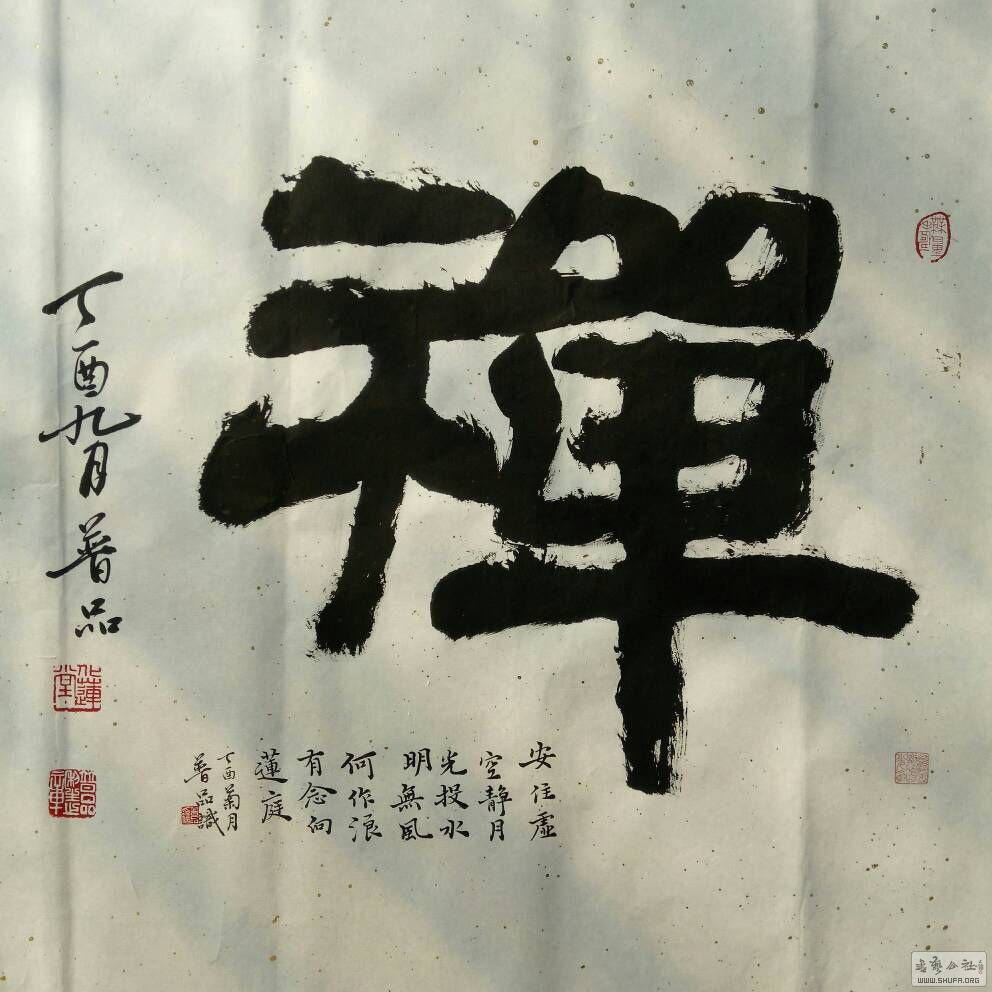 禪
安住虛
空靜月
光投水
明無風
何作浪
有念向
蓮庭
丁酉菊月
普品識
丁酉九月普品
WWW.SHUFA.ORG